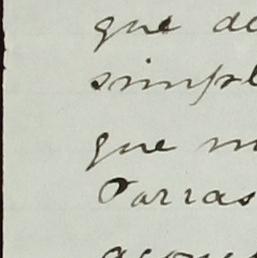 que
simpl
que m
Parras